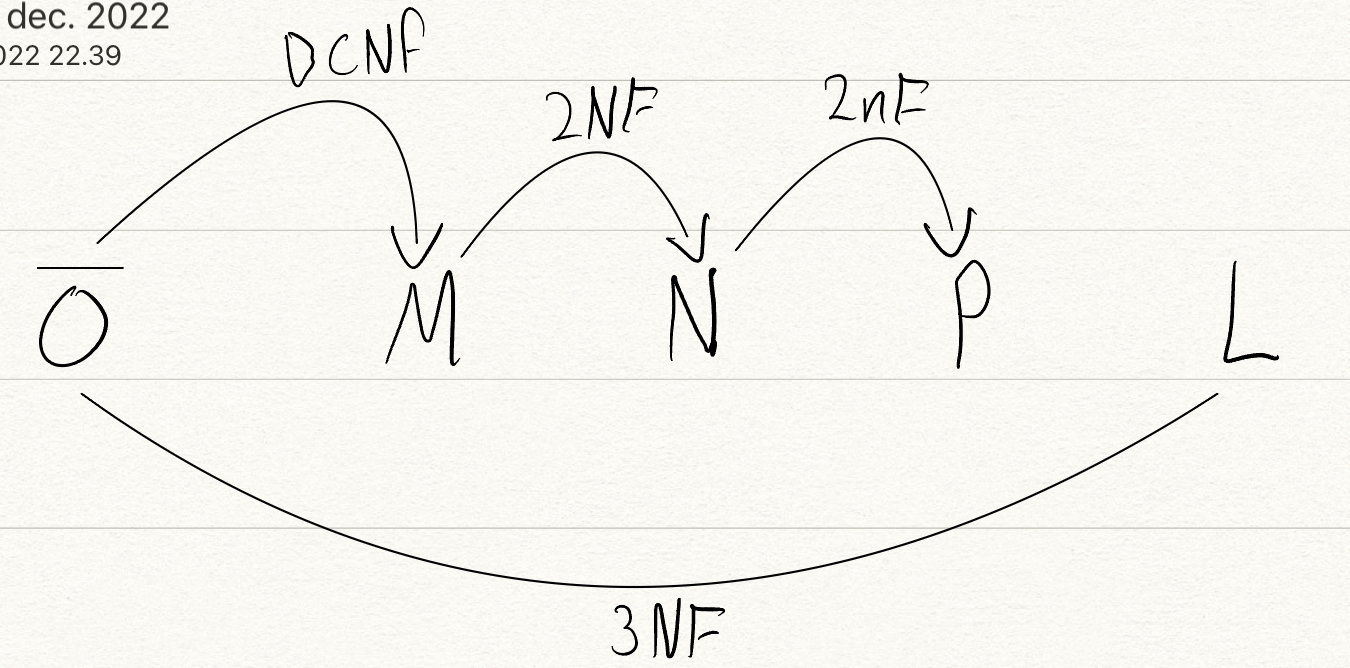 dec. 2022
022 22.39
DCNF
2NF
2nF
O M N P L
3NF